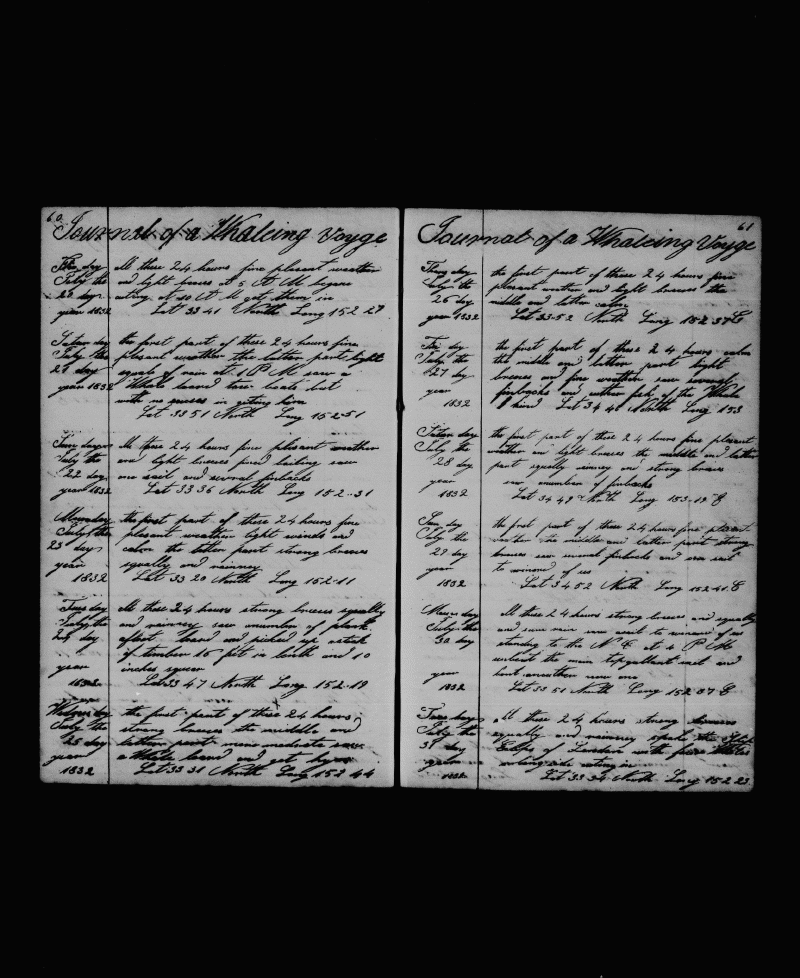 60
Journal of a Whaleing Voyge
Fri day All these 24 hours fine plesent weather
July the and light breeses at 5 A M began
20 day cuting at 10 A M got them in
year 1832 Lat 33 41 North Long 152 27
Satur day the first part of these 24 hours fine
July the plesent weather the latter part light
21 day squals of rain at 1 P M saw a
year 1832 Whale loard two boats but
with no sucsess in geting him
Lat 33 51 North Long 152-51
Sun day All these 24 hours fine plesant weather
July the and light breeses saw
22 day one sail and several finbacks
year 1832 Lat 33 36 North Long 152-31
Monday the first part of these 24 hours fine
July the plesent weather light winds and
23 day calm the latter part strong breeses
year squally and rainney
1832 Lat 33 20 North Long 152-11
Tues day All these 24 hours strong breeses squally
July the and rainney saw anumber of plank
24 day afloat loard and picked up astick
of timber 16 fet in lenth and 10
year inches squer
1832 Lat 33 47 North Long 152-19
Wednes day the first part of these 24 hours
July the strong breeses the middle and
25 day latter part more moderate saw
year aWhale loard and got
1832 Lat 33 31 North Long 152 44
61
Journal of a Whaleing Voyge
Thurs day the first part of these 24 hours fine
July the plesent wether and light breeses the
26 day middle and latter calm
year 1832 Lat 33-52 North Long 152 37 E
Fri day the first part of these 24 hours calm
July the the middle and latter part light
27 day breeses and fine weather saw severel
year finbacks and other fish of the Whale
1832 kind Lat 34 41 North Long 153
Satur day the first part of these 24 hours fine plesant
July the weather and light breeses the middle and latter
28 day part squally rainey and strong breeses
year saw anumber of finbacks
1832 Lat 34 49 North Long 153-19 E
Sun day the first part of these 24 hours fine plesant
July the weather the middle and latter part strong
29 day breeses saw severel finbacks and one sail
year to winward of us
1832 Lat 34 52 North Long 152 41 E
Mon day All these 24 hours strong breeses and squally
July the and sum rain saw asail to winward of us
30 day standing to the N E at 4 P M
unbent the main topgallant sail and
year bent anouther new one
1832 Lat 33 51 North Long 152 07 E
Tues day All these 24 hours strong breeses
July the squally and rainney spoke the Ship
31 day of London with Whales
year along side cuting in
1832 Lat 33 34 North Long 152 23